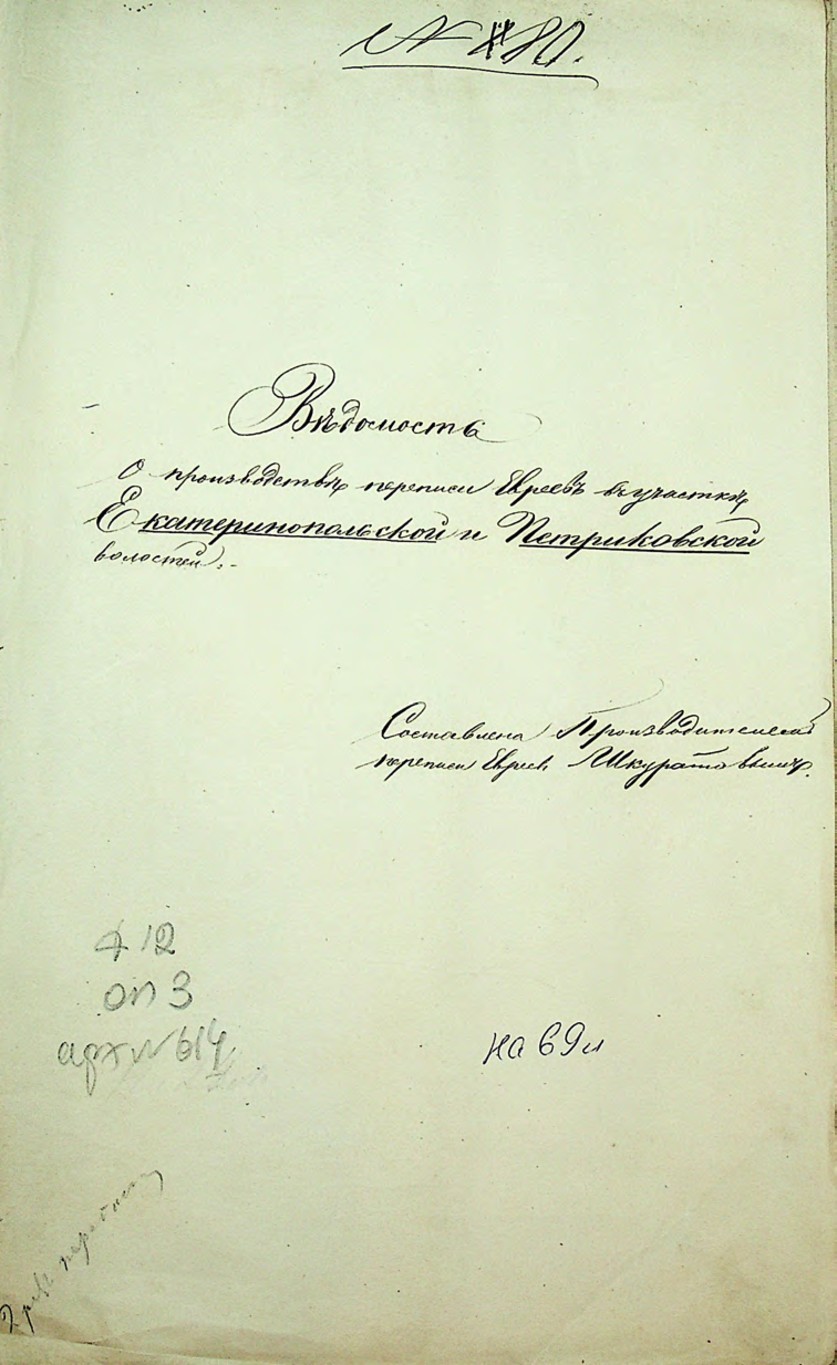 № 80.
Вѣдомость
О производствѣ переписи Евреевъ въ участкѣ
Екатеринопольской и Петриковской
волостей.
Составлена Производителемъ
переписи Евреевъ Шкуратовымъ.
ф 12
оп 3
арх № 614
на 69 л